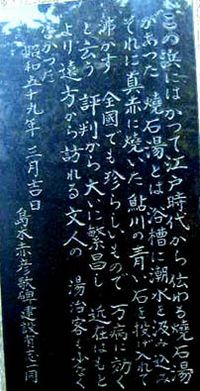 この浜にはかつて江戸時代から伝わる焼石湯
があった 焼石湯とは 浴槽に潮水を汲み込み
それに真赤に焼いた鮎川の青い石を投げ入れて
沸かす 全国でも珍らしいもので 万病に効く
と云う 評判から大いに繁昌し 近在はもと
より遠方から訪れる文人の 湯治客も少くな
かった
昭和五十九年 三月吉日
島木赤彦歌碑建設有志一同